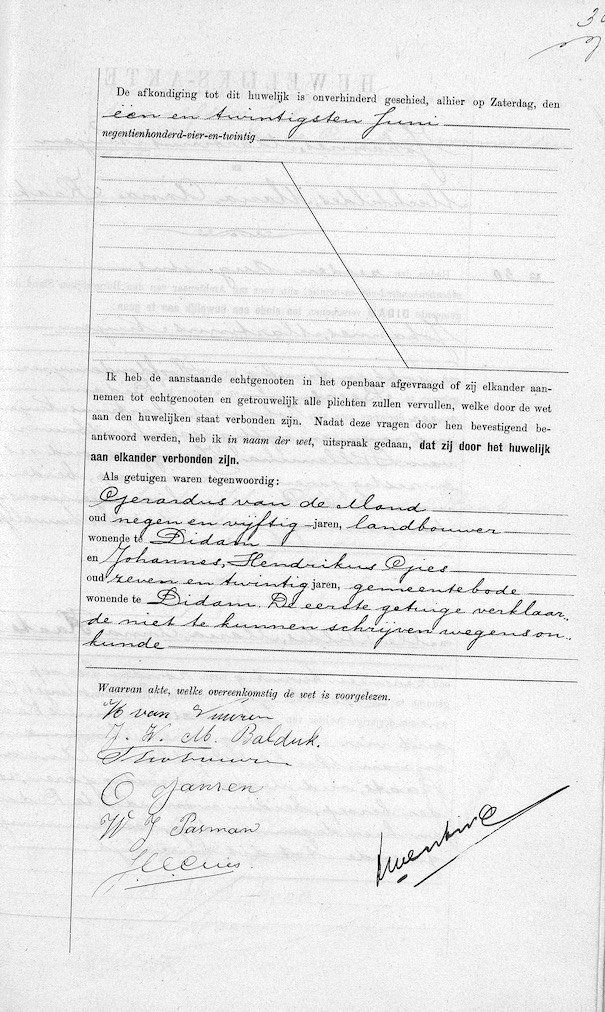 De afkondiging tot dit huwelijk is onverhinderd geschied, alhier op Zaterdag, den
één en twintigsten Juni
negentienhonderd-vier-en-twintig
Ik heb de aanstaande echtgenooten in het openbaar afgevraagd of zij elkander aan-
nemen tot echtgenooten en getrouwelijk alle plichten zullen vervullen, welke door de wet
aan den huwelijken staat verbonden zijn. Nadat deze vragen door hen bevestigend be-
antwoord werden, heb ik in naam der wet, uitspraak gedaan, dat zij door het huwelijk
aan elkander verbonden zijn.
Als getuigen waren tegenwoordig:
Gerardus van de Mond
oud negen en vijftig jaren, landbouwer
wonende te Didam
en Johannes, Hendrikus
oud zeven en twintig jaren, gemeentebode
wonende te Didam. De eerste getuige verklaar-
de niet te kunnen schrijven wegens on-
kunde
Waarvan akte, welke overeenkomstig de wet is voorgelezen.
H van
M. Balduk.
Jansen
W J Pasman